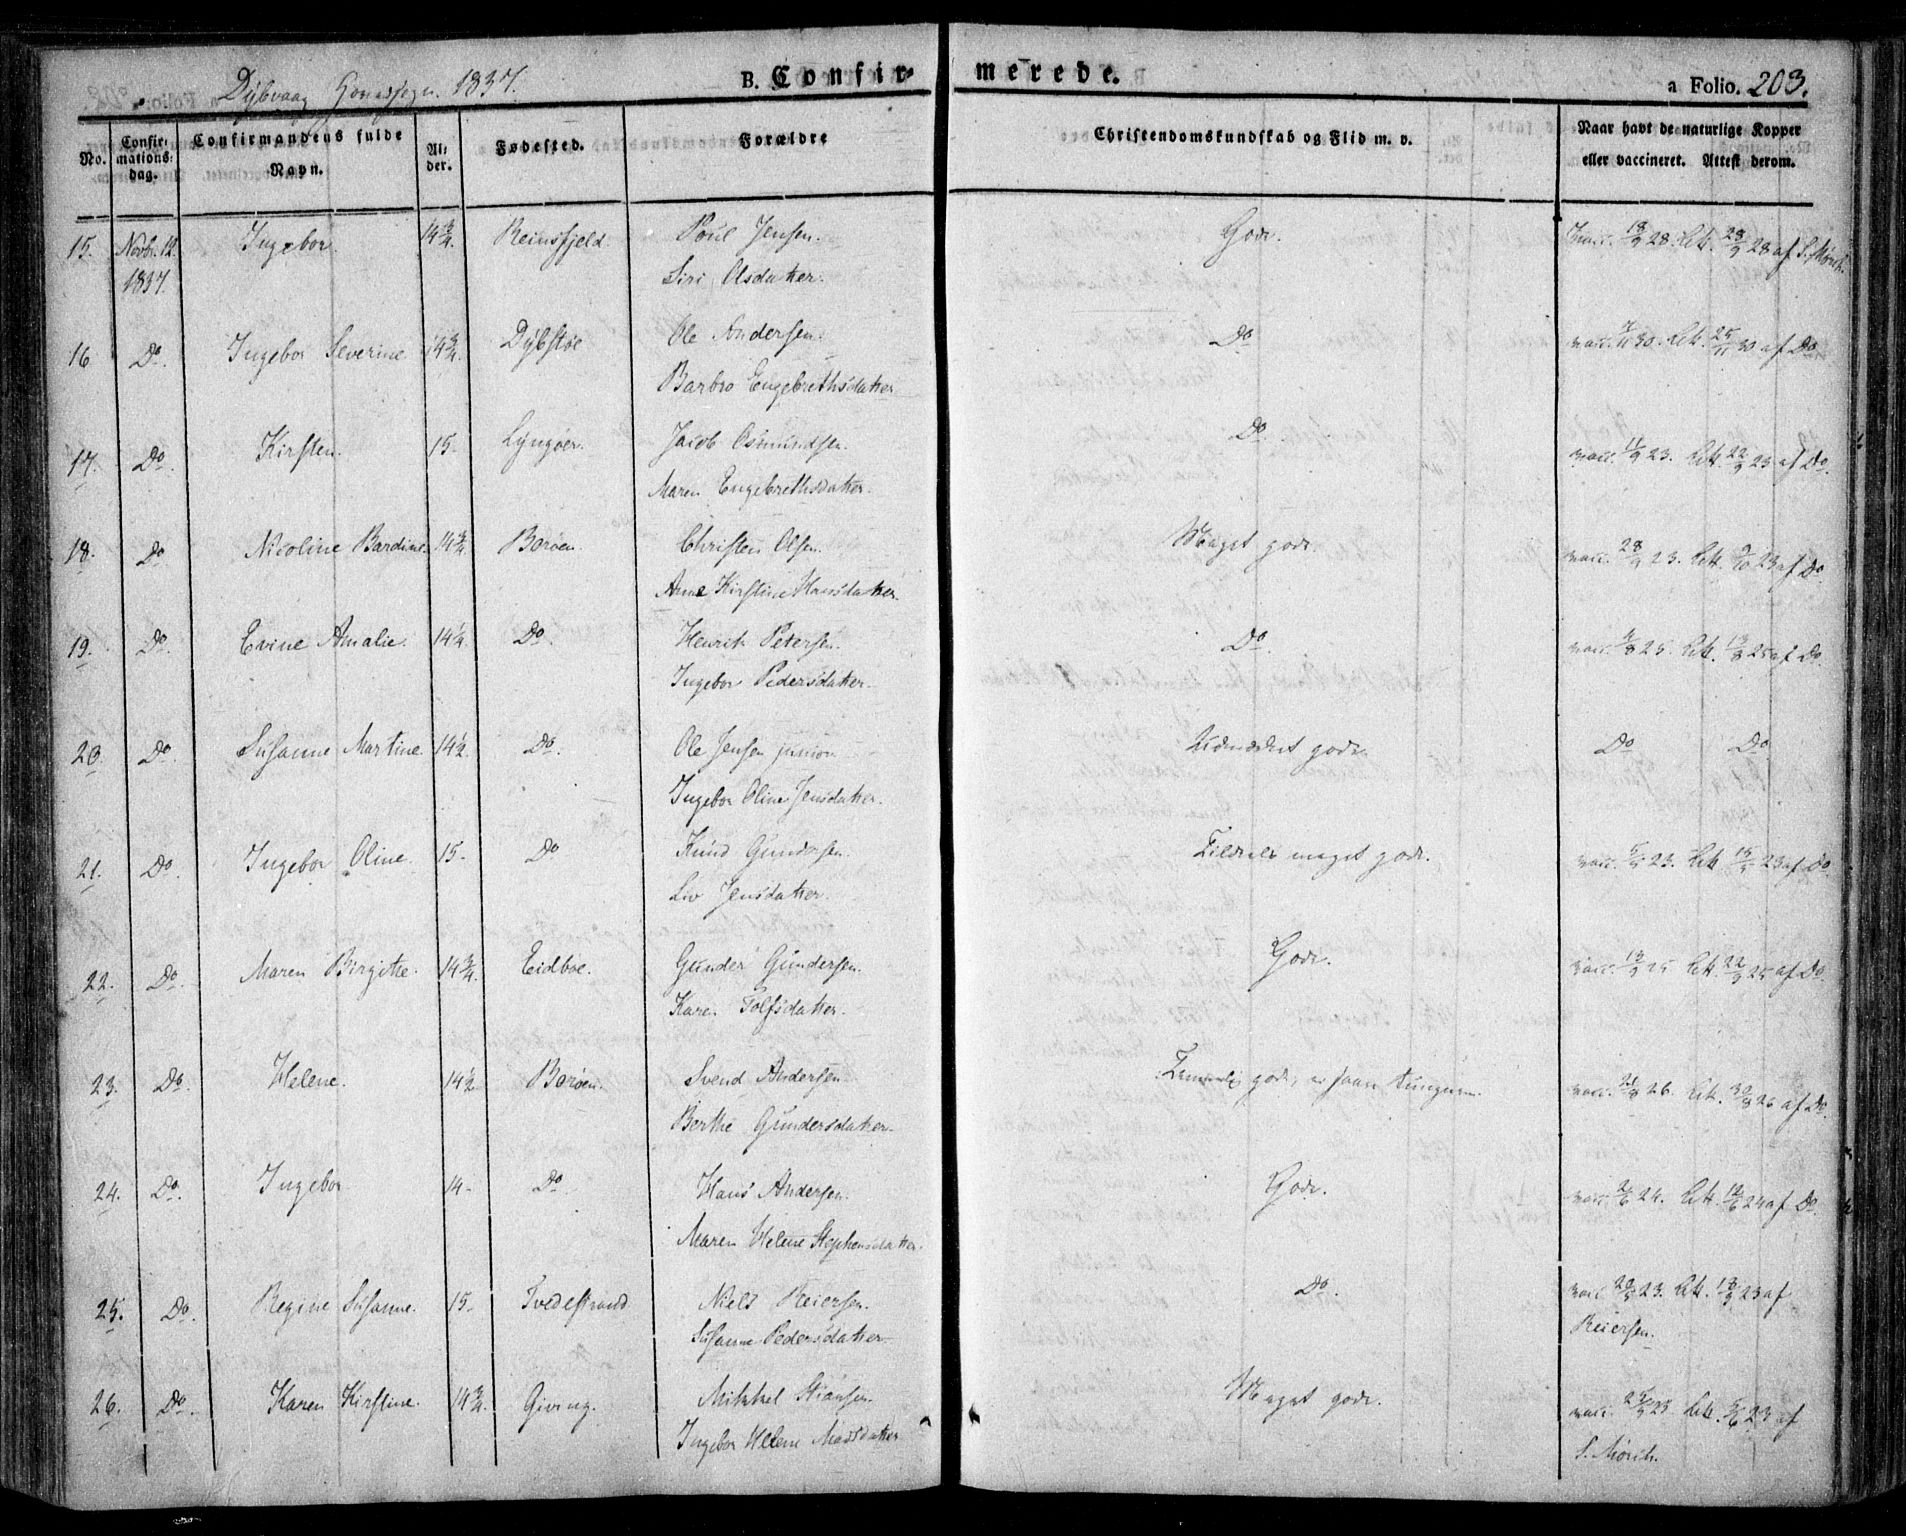 Dybvaag Hovedsogn. 1837.
B. Confir-merede.
a Folio. 203.
No. Confir-mations-dag. Confirmandens fulde Navn. Al-der. Fødested. Forældre Christendomskundskab og Flid m. v. Naar havt de naturlige Kopper eller vaccineret. Attest derom.
15. Novbr. 12. Ingebor. 14 3/4. Reinsfjeld. Poul Jensen. Godt. Vacc. 18/9 28. Att. 28/9 28 af S. Mörch.
1837. Siri Olsdatter.
16 Do. Ingebor Severine 14 3/4. Dybstøe Ole Andersen. Do vacc. 7/11 30. Att. 25/11 30 af Do
Barbro Engebrethsdatter
17. Do. Kirsten. 15. Lyngøer. Jacob Osmundsen. Do. vacc. 11/9 23. Att. 22/9 23 af Do.
Maren Engebrethsdatter.
18. Do Nicoline Bardine. 14 3/4 Borøen. Christen Olsen. Meget godt. vacc. 28/9 23. Att. 9/10 23 af Do.
Anne Kirstine Hansdatter.
19. Do. Evine Amalie. 14 1/4. Do. Henrik Petersen. Do. vacc. 4/8 25. Att. 13/8 25 af Do.
Ingebor Pedersdatter.
20. Do. Susanne Martine 14 1/2. Do. Ole Jensen junior Udmærket godt. Do Do
Ingebor Oline Jensdatter.
21. Do. Ingebor Oline. 15. Do Knud Gundersen. Tildeels meget godt. vacc. 5/9 23. Att. 15/9 23 af Do.
Liv Jensdatter.
22. Do. Maren Birgitte. 14 3/4. Eidboe. Gunder Gundersen. Godt. vacc. 13/9 25 Att. 22/9 25 af Do
Karen Tolfsdatter.
23. Do. Helene. 14 1/2. Borøen. Svend Andersen. Temmelig godt, er saare tungnem. vacc. 21/8 26. Att. 30/8 26 af Do.
Berthe Gundersdatter.
24. Do. Ingebor 14. Do. Hans Andersen. Godt. vacc. 2/6 24. Att. 12/6 24 af Do.
Maren Helene Stephensdatter.
25. Do. Regine Susanne. 15. Tvedestrand. Niels Reiersen. Do. vacc 23. Att. 13/9 23 af
Susanne Pedersdatter Reiersen.
26. Do. Karen Kirstine. 14 3/4. Giving. Mikkel Stiansen. Meget godt. vacc. 23 Att. 23 af
Ingebor Helene Madsdatter S. Mörch.